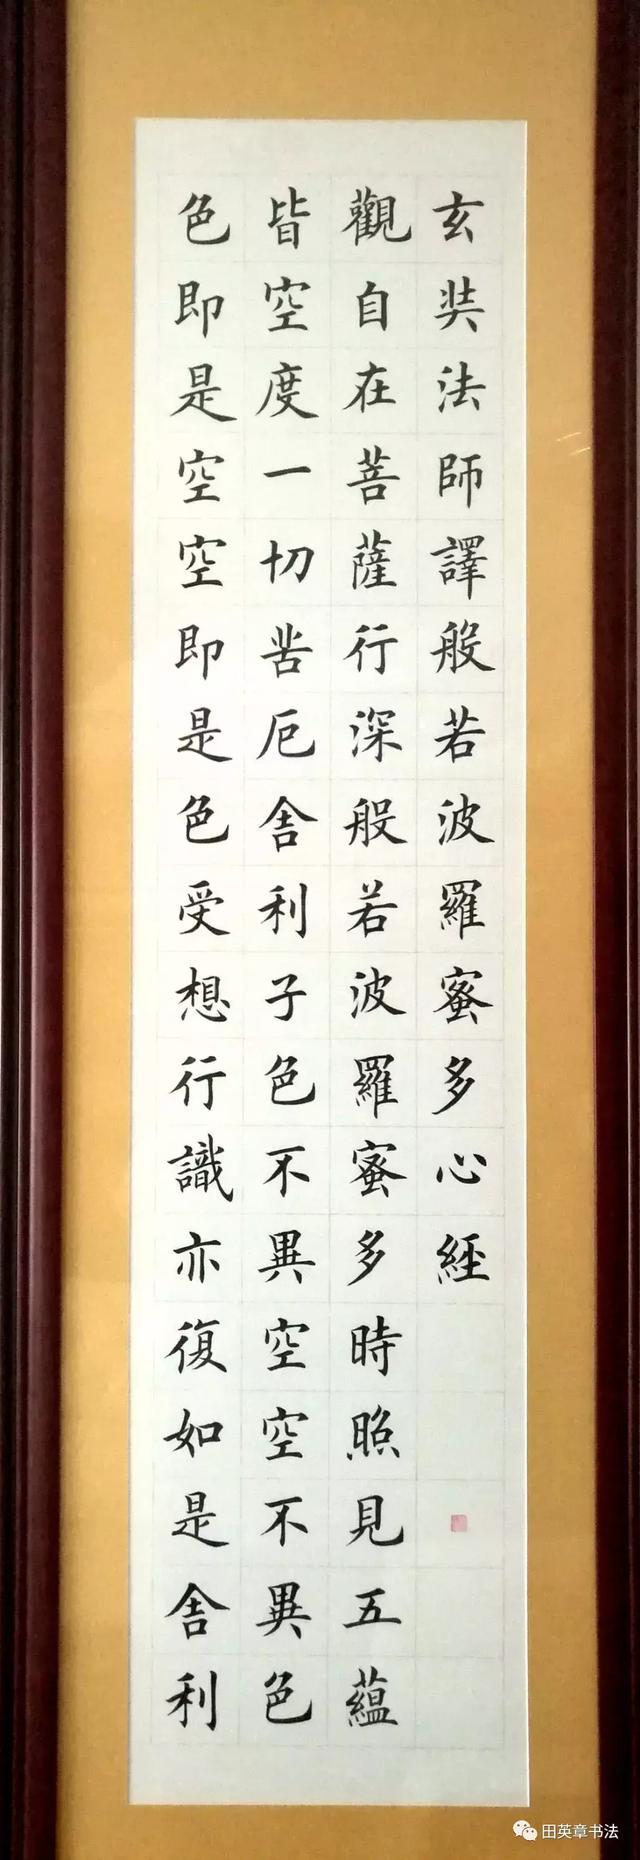 玄奘法師譯般若波羅蜜多心經
觀自在菩薩行深般若波羅蜜多時照見五蘊
皆空度一切苦厄舍利子色不異空空不異色
色即是空空即是色受想行識亦復如是舍利
田英章书法